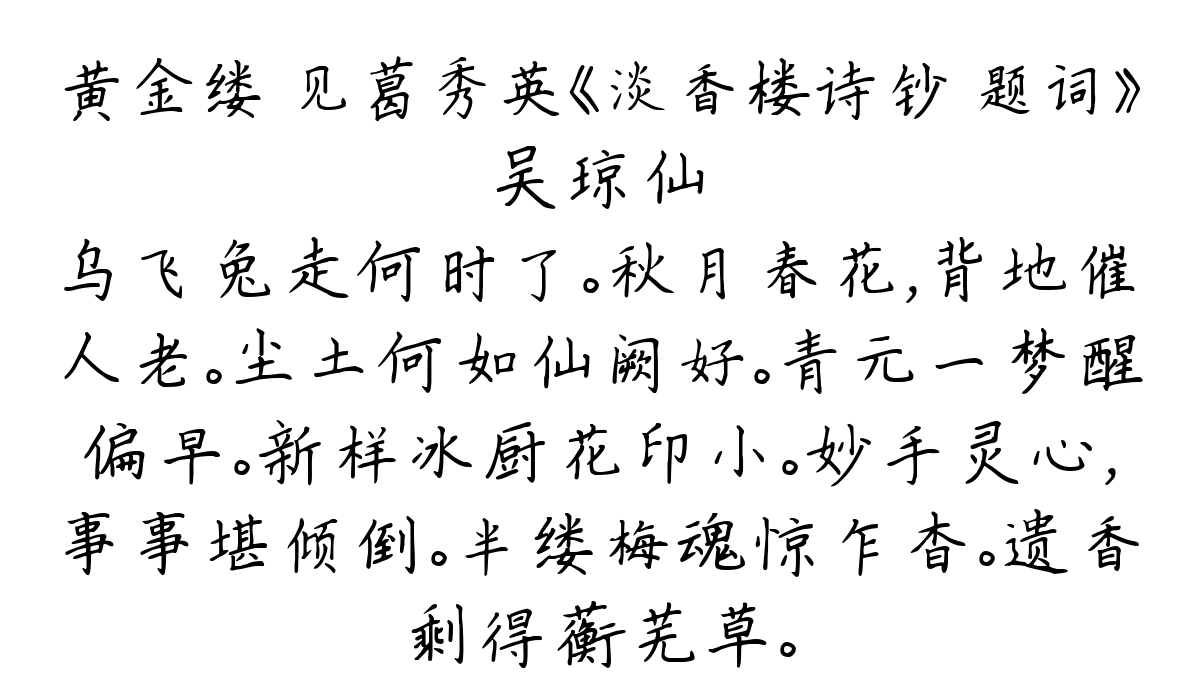 黄金缕 见葛秀英《淡香楼诗钞 题词》
吴琼仙
乌飞兔走何时了。秋月春花,背地催
人老。尘土何如仙阙好。青元一梦醒
偏早。新样冰厨花印小。妙手灵心,
事事堪倾倒。半缕梅魂惊乍杳。遗香
剩得蘅芜草。